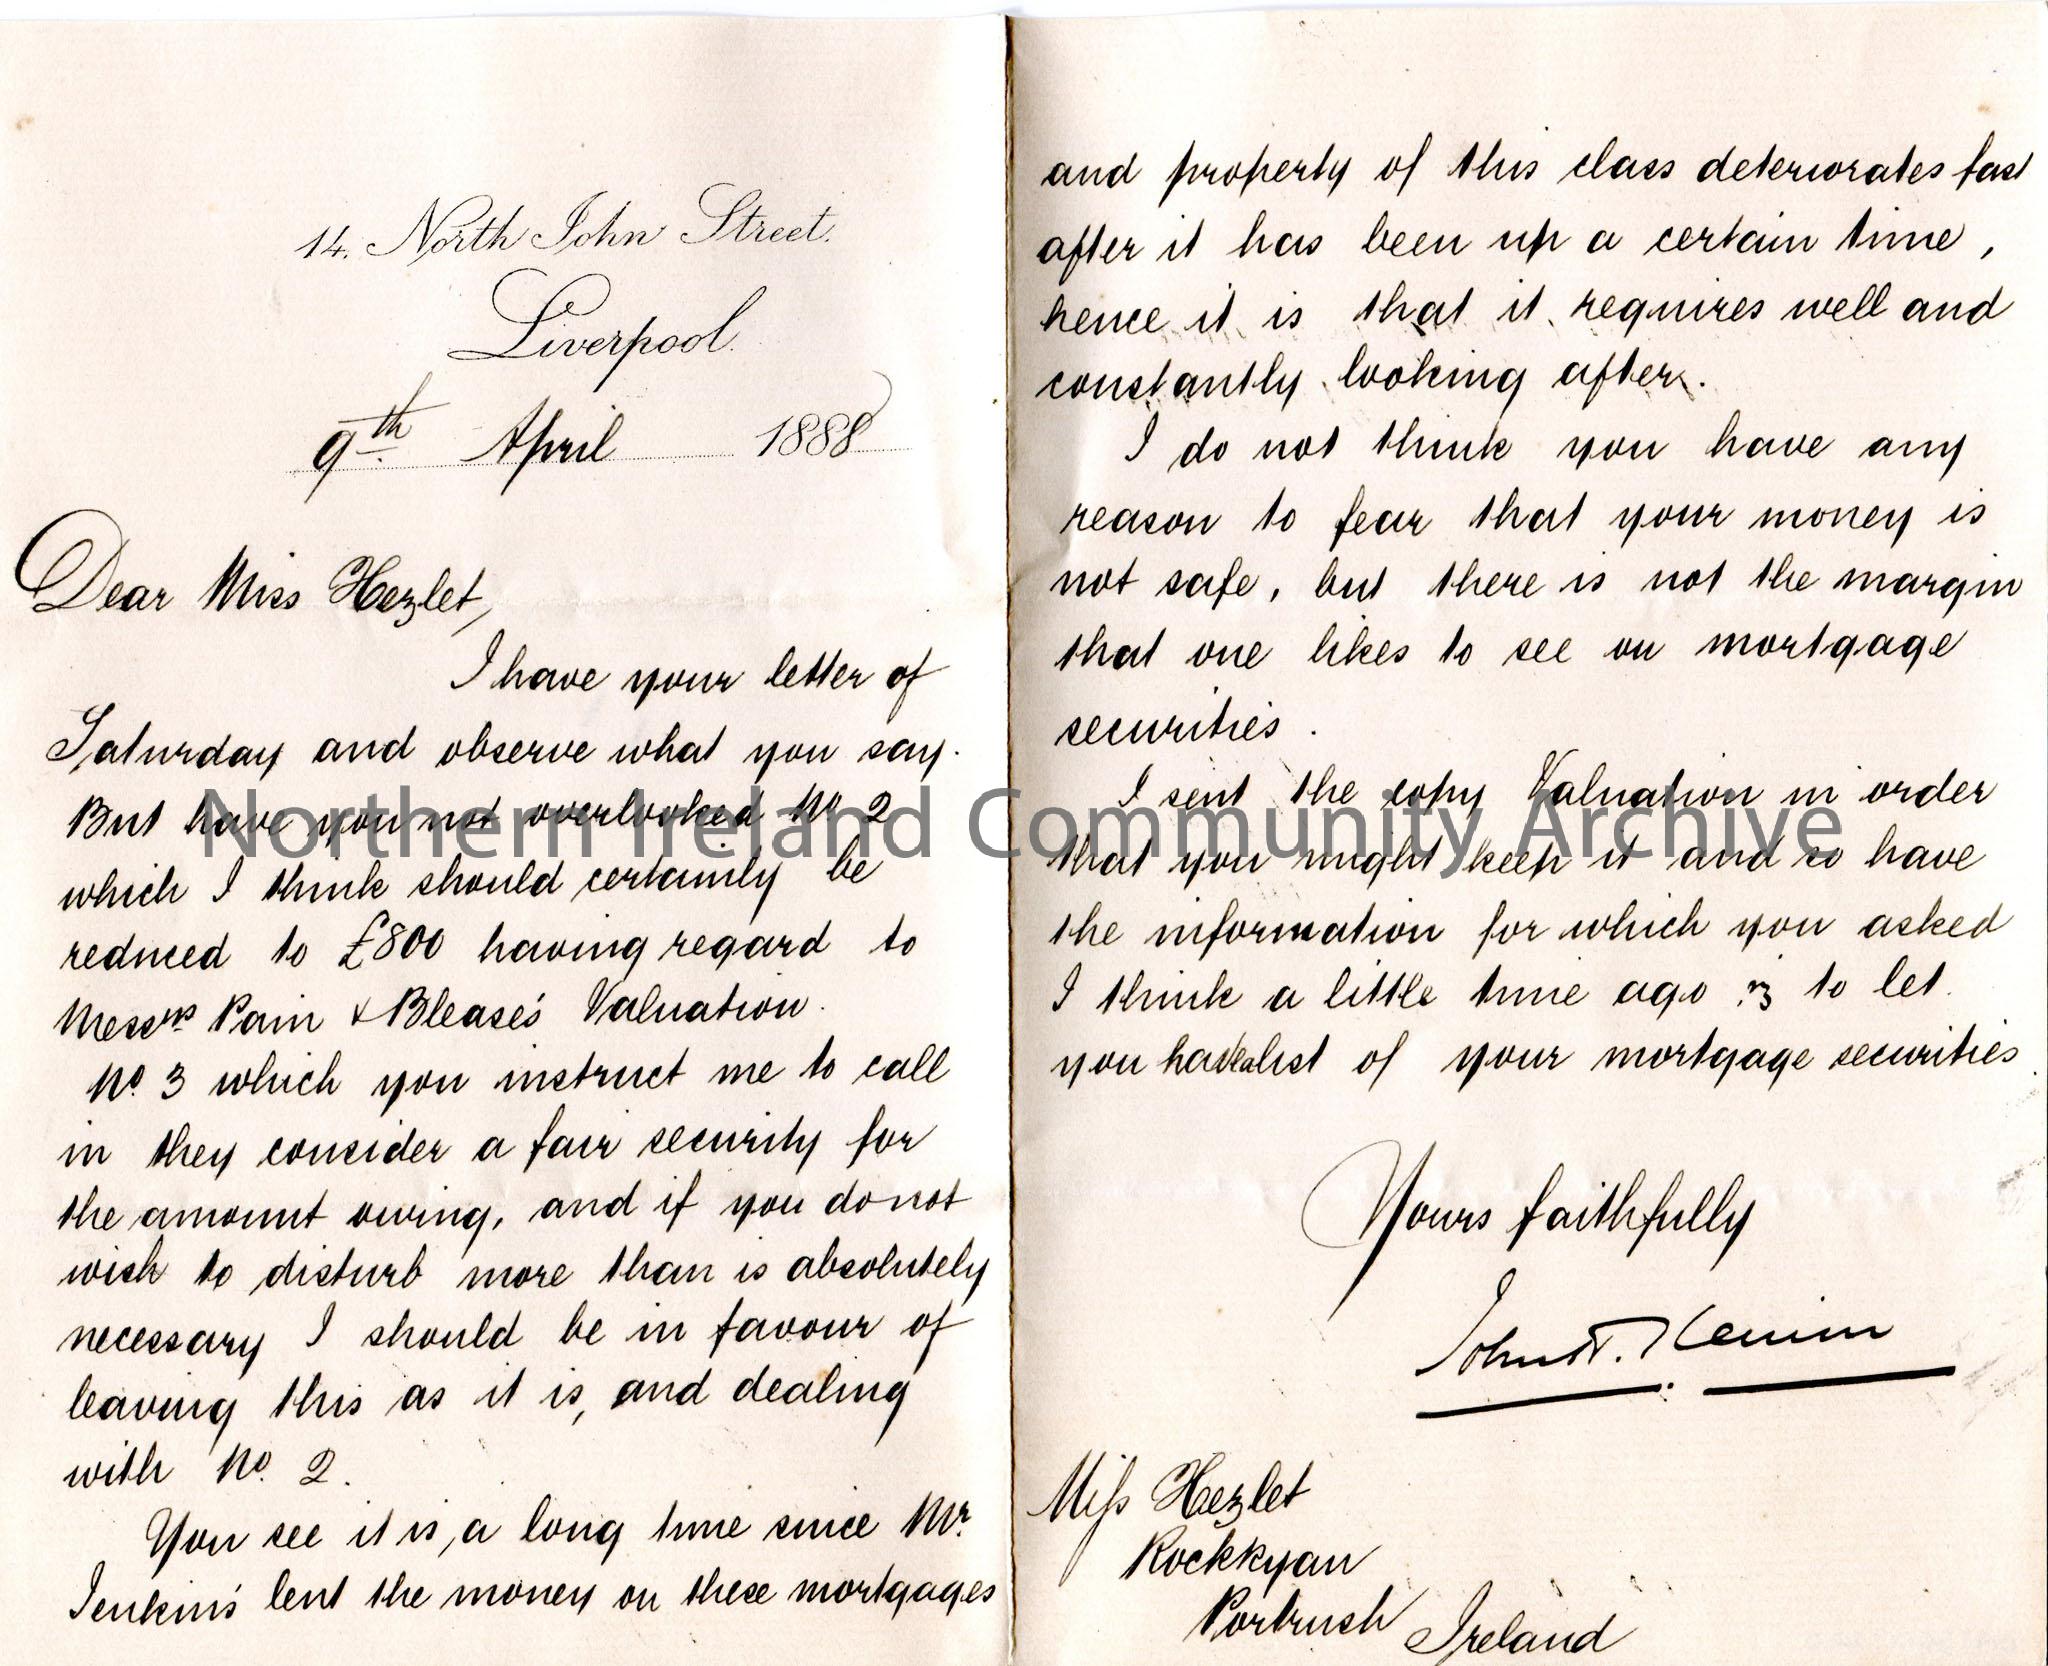 14. North John Street.
Liverpool.
9th April 1888
Dear Miss Hezlet,
I have your letter of
Saturday and observe what you say.
But have you not overlooked No. 2
which I think should certainly be
reduced to £800 having regard to
Messrs Pain & Blease's Valuation.
No. 3 which you instruct me to call
in they consider a fair security for
the amount owing, and if you do not
wish to disturb more than is absolutely
necessary I should be in favour of
leaving this as it is, and dealing
with No. 2.
You see it is, a long time since Mr.
Jenkins' lent the money on these mortgages
and property of this class deteriorates fast
after it has been up a certain time,
hence it is that it requires well and
constantly looking after.
I do not think you have any
reason to fear that your money is
not safe, but there is not the margin
that one likes to see on mortgage
securities.
I sent the copy Valuation in order
that you might keep it and so have
the information for which you asked
I think a little time ago to let
you have a list of your mortgage securities.
Yours faithfully
John
Miss Hezlet
Rockkyan
Portrush Ireland
Northern Ireland Community Archive